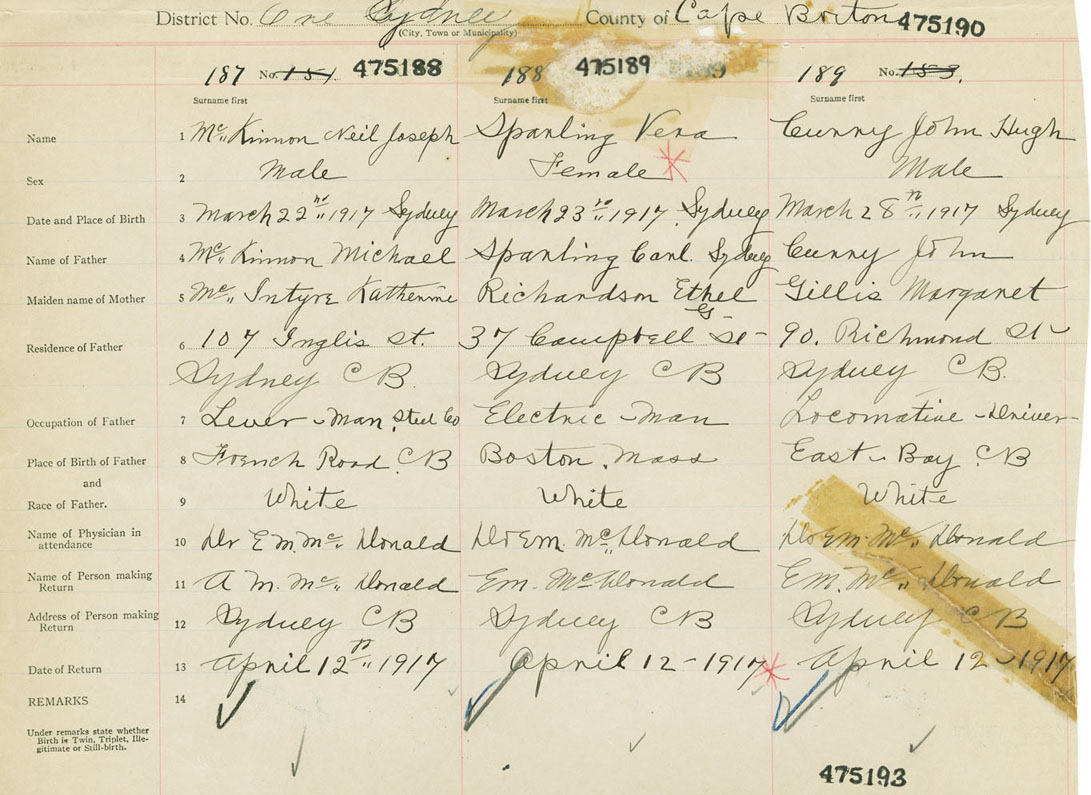 District No. One Sydney County of Cape Briton 475190
(City, Town or Municipality)
187 No. 151. 475188 188 475189 189 No. 153.
Surname first Surname first Surname first
Name 1 Mc,, Kinnon Neil Joseph Sparling Vera Curry John Hugh
Sex 2 Male Female Male
Date and Place of Birth 3 March 22nd,, 1917 Sydney March 23rd,, 1917. Sydney March 28th,, 1917 Sydney
Name of Father 4 Mc,, Kinnon Michael Sparling Carl. Sydney Curry John
Maiden name of Mother 5 Mc,, Intyre Katherine Richardson Ethel Gillis Margaret
Residence of Father 6 107 Inglis St. 37 Campbell St 90. Richmond St
Sydney CB. Sydney CB Sydney CB.
Occupation of Father 7 Lever-Man, Steel Co Electric-Man Locomative-Driver
Place of Birth of Father 8 French Road. CB Boston. Mass East-Bay. CB
and
Race of Father. 9 White White White
Name of Physician in
attendance 10 Dr E M. Mc,, Donald Dr Em. Mc,, Donald Dr Em. Mc,, Donald
Name of Person making
Return 11 A M. Mc,, Donald Em. McDonald Em. Mc,, Donald
Address of Person making
Return 12 Sydney CB Sydney CB Sydney CB
Date of Return 13 April 12th,, 1917 April 12-1917 April 12-1917
REMARKS 14
Under remarks state whether
Birth is Twin, Triplet, Ille-
gitimate or Still-birth.
475193